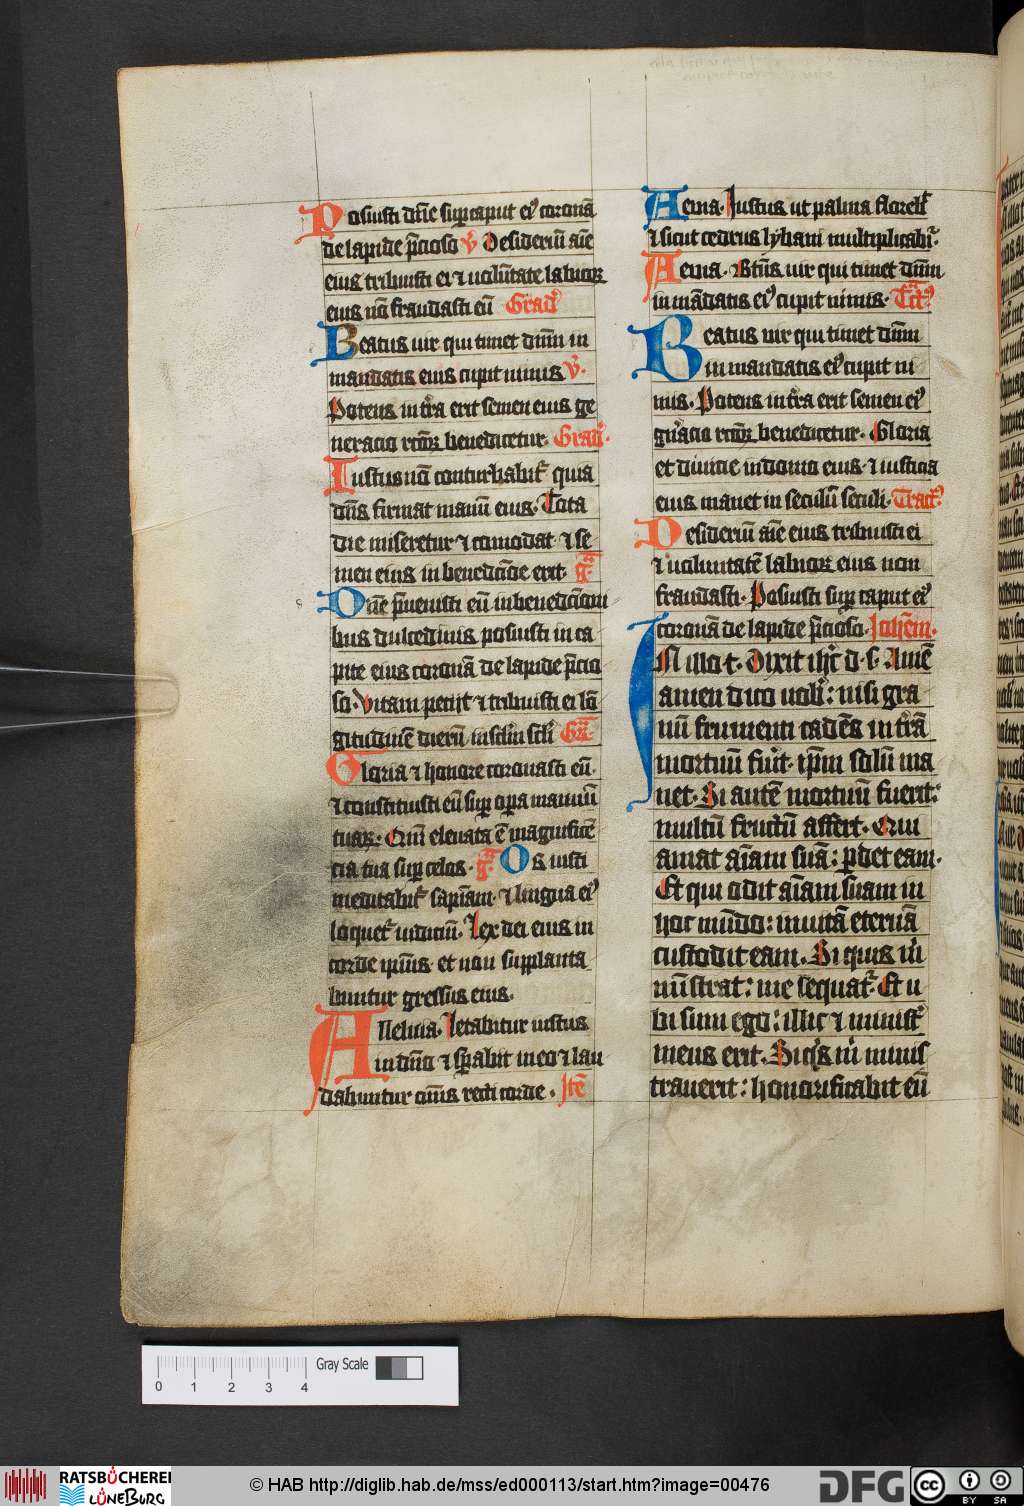 Posuisti dn̄e sup̱ caput eiꝰ coronā
de lapide p̄cioso v̄. Desideriū aīe
eius tribuisti ei ⁊ uolūtate labioꝝ
eius nō fraudasti eū Grad̓
Beatus uir qui timet dn̄m in
mandatis eius cupit nimis v̄.
Potens in t̄ra erit semen eius ge
neracio rc̄oꝝ benedicetur. Grad̓.
Iustus nō conturbabit᷑ quia
dn̄s firmat manū eius. Tota
die miseretur ⁊ comodat ⁊ se
men eius in benedicc̄ōe erit. g̃
Dn̄e p̄uenisti eū in benedicc̄oni
bus dulcedinis posuisti in ca
pite eius coronā de lapide p̄cio
so. Vitam petijt ⁊ tribuisti ei lō
gitudinē dierū in sc̄lm sc̄li Gr̄a.
Gloria ⁊ honore coronasti eū.
⁊ constituisti eū sup̱ oṗa manuū
tuaꝝ. Qm̄ eleuata ē magnificē
cia tua sup̱ celos. g̃. Os iusti
meditabit᷑ sapīam. ⁊ lingua eiꝰ
loquet᷑ iudiciū. Lex dei eius in
corde ipīus et non supplanta
buntur gressus eius.
Alleluia. Letabitur iustus
in dn̄o ⁊ sp̱abit in eo ⁊ lau
dabuntur om̄s recti corde. Itē
Aeuia. Iustus ut palma florebit᷑
⁊ sicut cedrus lybani multiplicabit᷑.
Aeuia. Bt̄us uir qui timet dn̄m
in mādatis eiꝰ cupit nimis. Tctꝰ
Beatus uir qui timet dn̄m
in mandatis eiꝰ cupit ni
mis. Potens in t̄ra erit semen eiꝰ
gn̄acio rc̄oꝝ benedicetur. Gloria
et diuicie in domo eius. ⁊ iusticia
eius manet in seculū seculi. Tractꝰ
Desideriū aīe eius tribuisti ei
⁊ uoluntatē labioꝝ eius non
fraudasti. Posuisti sup̱ caput eiꝰ
coronā de lapide p̄cioso. Ioh̄em.
IN illo t. Dixit ih̄c d. s. Amē
amen dico uob̄: nisi gra
nū frumenti cadēs in t̄rā
mortuū fūit. ip̄m solū ma
net. Si autē mortuū fuerit:
multū fructū affert. Qui
amat aīam suā: p̱det eam.
Et qui odit aīam suam in
hoc mūdo: in uitā eternā
custodit eam. Si quis m̄
mīstrat: me sēquat᷑. Et u
bi sum ego: illic ⁊ minist᷑
meus erit. Si q̄s m̄ minis
trauerit: honorificabit eū
Gray Scale
0 1 2 3 4
RATSBÜCHEREI
LÜNEBURG
© HAB http://diglib.hab.de/mss/ed000113/start.htm?image=00476
DFG
cc BY SA